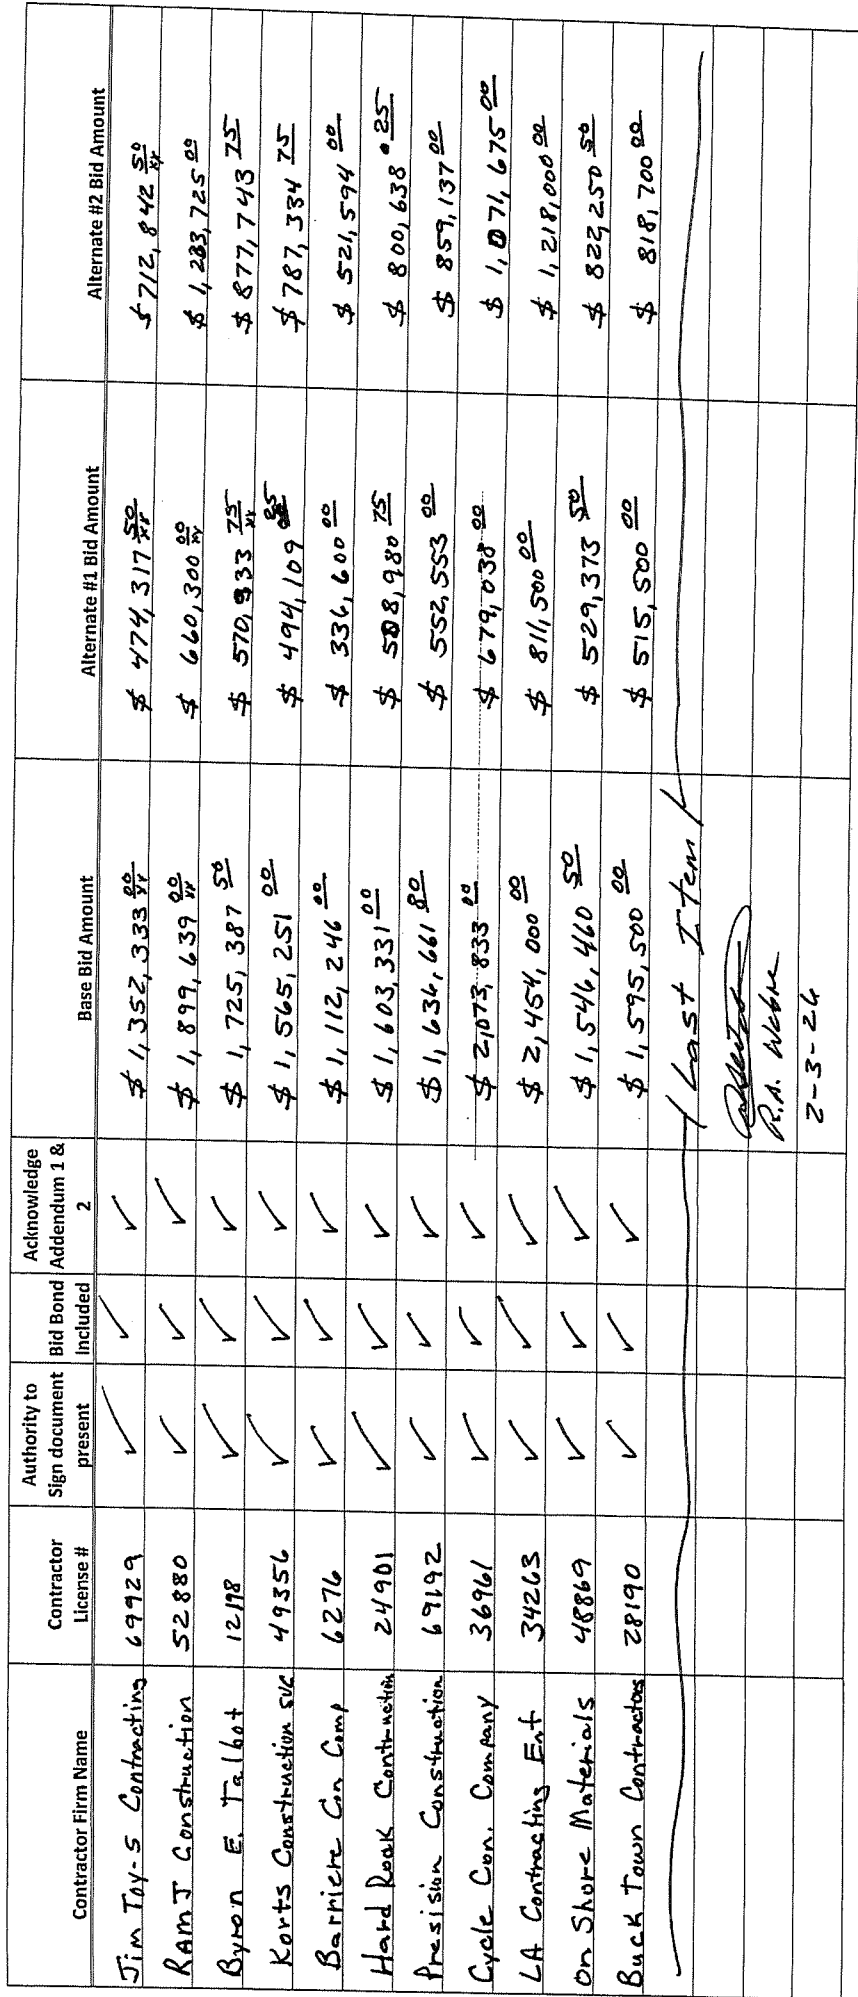 Contractor Firm Name | Contractor License # | Authority to Sign document present | Bid Bond Included | Acknowledge Addendum 1 & 2 | Base Bid Amount | Alternate #1 Bid Amount | Alternate #2 Bid Amount
Jim Toy-S Contracting | 69929 | ✓ | ✓ | ✓ | $ 1,352,333 00/xx | $ 474,317 50/xx | $ 712,842 50/xx
RAMJ Construction | 52880 | ✓ | ✓ | ✓ | $ 1,899,639 00/xx | $ 660,300 00/xx | $ 1,283,725 00
Byron E. Talbot | 12198 | ✓ | ✓ | ✓ | $ 1,725,387 50 | $ 570,933 75/xx | $ 877,743 75
Korts Construction SVC | 49356 | ✓ | ✓ | ✓ | $ 1,565,251 00 | $ 494,109 | $ 787,334 75
Barriere Con Comp | 6276 | ✓ | ✓ | ✓ | $ 1,112,246 00 | $ 336,600 00 | $ 521,594 00
Hard Rock Contruction | 24901 | ✓ | ✓ | ✓ | $ 1,603,331 00 | $ 508,980 75 | $ 800,638 .25
Presision Construction | 69192 | ✓ | ✓ | ✓ | $ 1,634,661 80 | $ 552,553 00 | $ 859,137 00
Cycle Con. Company | 36961 | ✓ | ✓ | ✓ | $ 2,073,833 00 | $ 679,038 00 | $ 1,071,675 00
LA Contracting Ent | 34263 | ✓ | ✓ | ✓ | $ 2,454,000 00 | $ 811,500 00 | $ 1,218,000 00
On Shore Materials | 48869 | ✓ | ✓ | ✓ | $ 1,546,460 50 | $ 529,373 50 | $ 822,250 50
Buck Town Contractors | 28190 | ✓ | ✓ | ✓ | $ 1,595,500 00 | $ 515,500 00 | $ 818,700 00
/ Last Item /
R.A. Webre
2-3-26